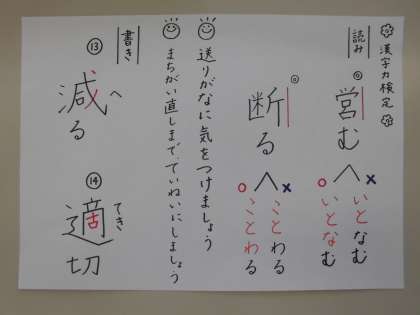 漢字力検定
読み
営む
×いとなむ
○いとなむ
断る
×ことわる
○ことわる
送りがなに気をつけましょう
まちがい直しまで、ていねいにしましょう
書き
⑬
減る
へ
⑭
適切
てき
舌